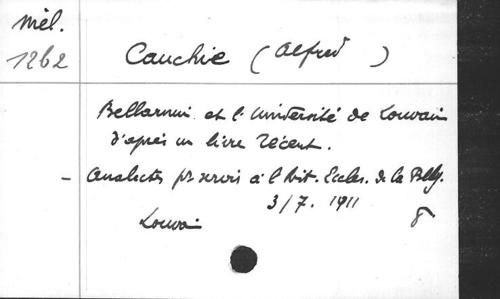 Mél.
1262
Cauchie (Alfred)
Bellarmin et l'Université de Louvain
d'après un livre récent.
- Analectes pr servir à l'hist. Eccles. de la Belg.
3/7. 1911
Louvain
8